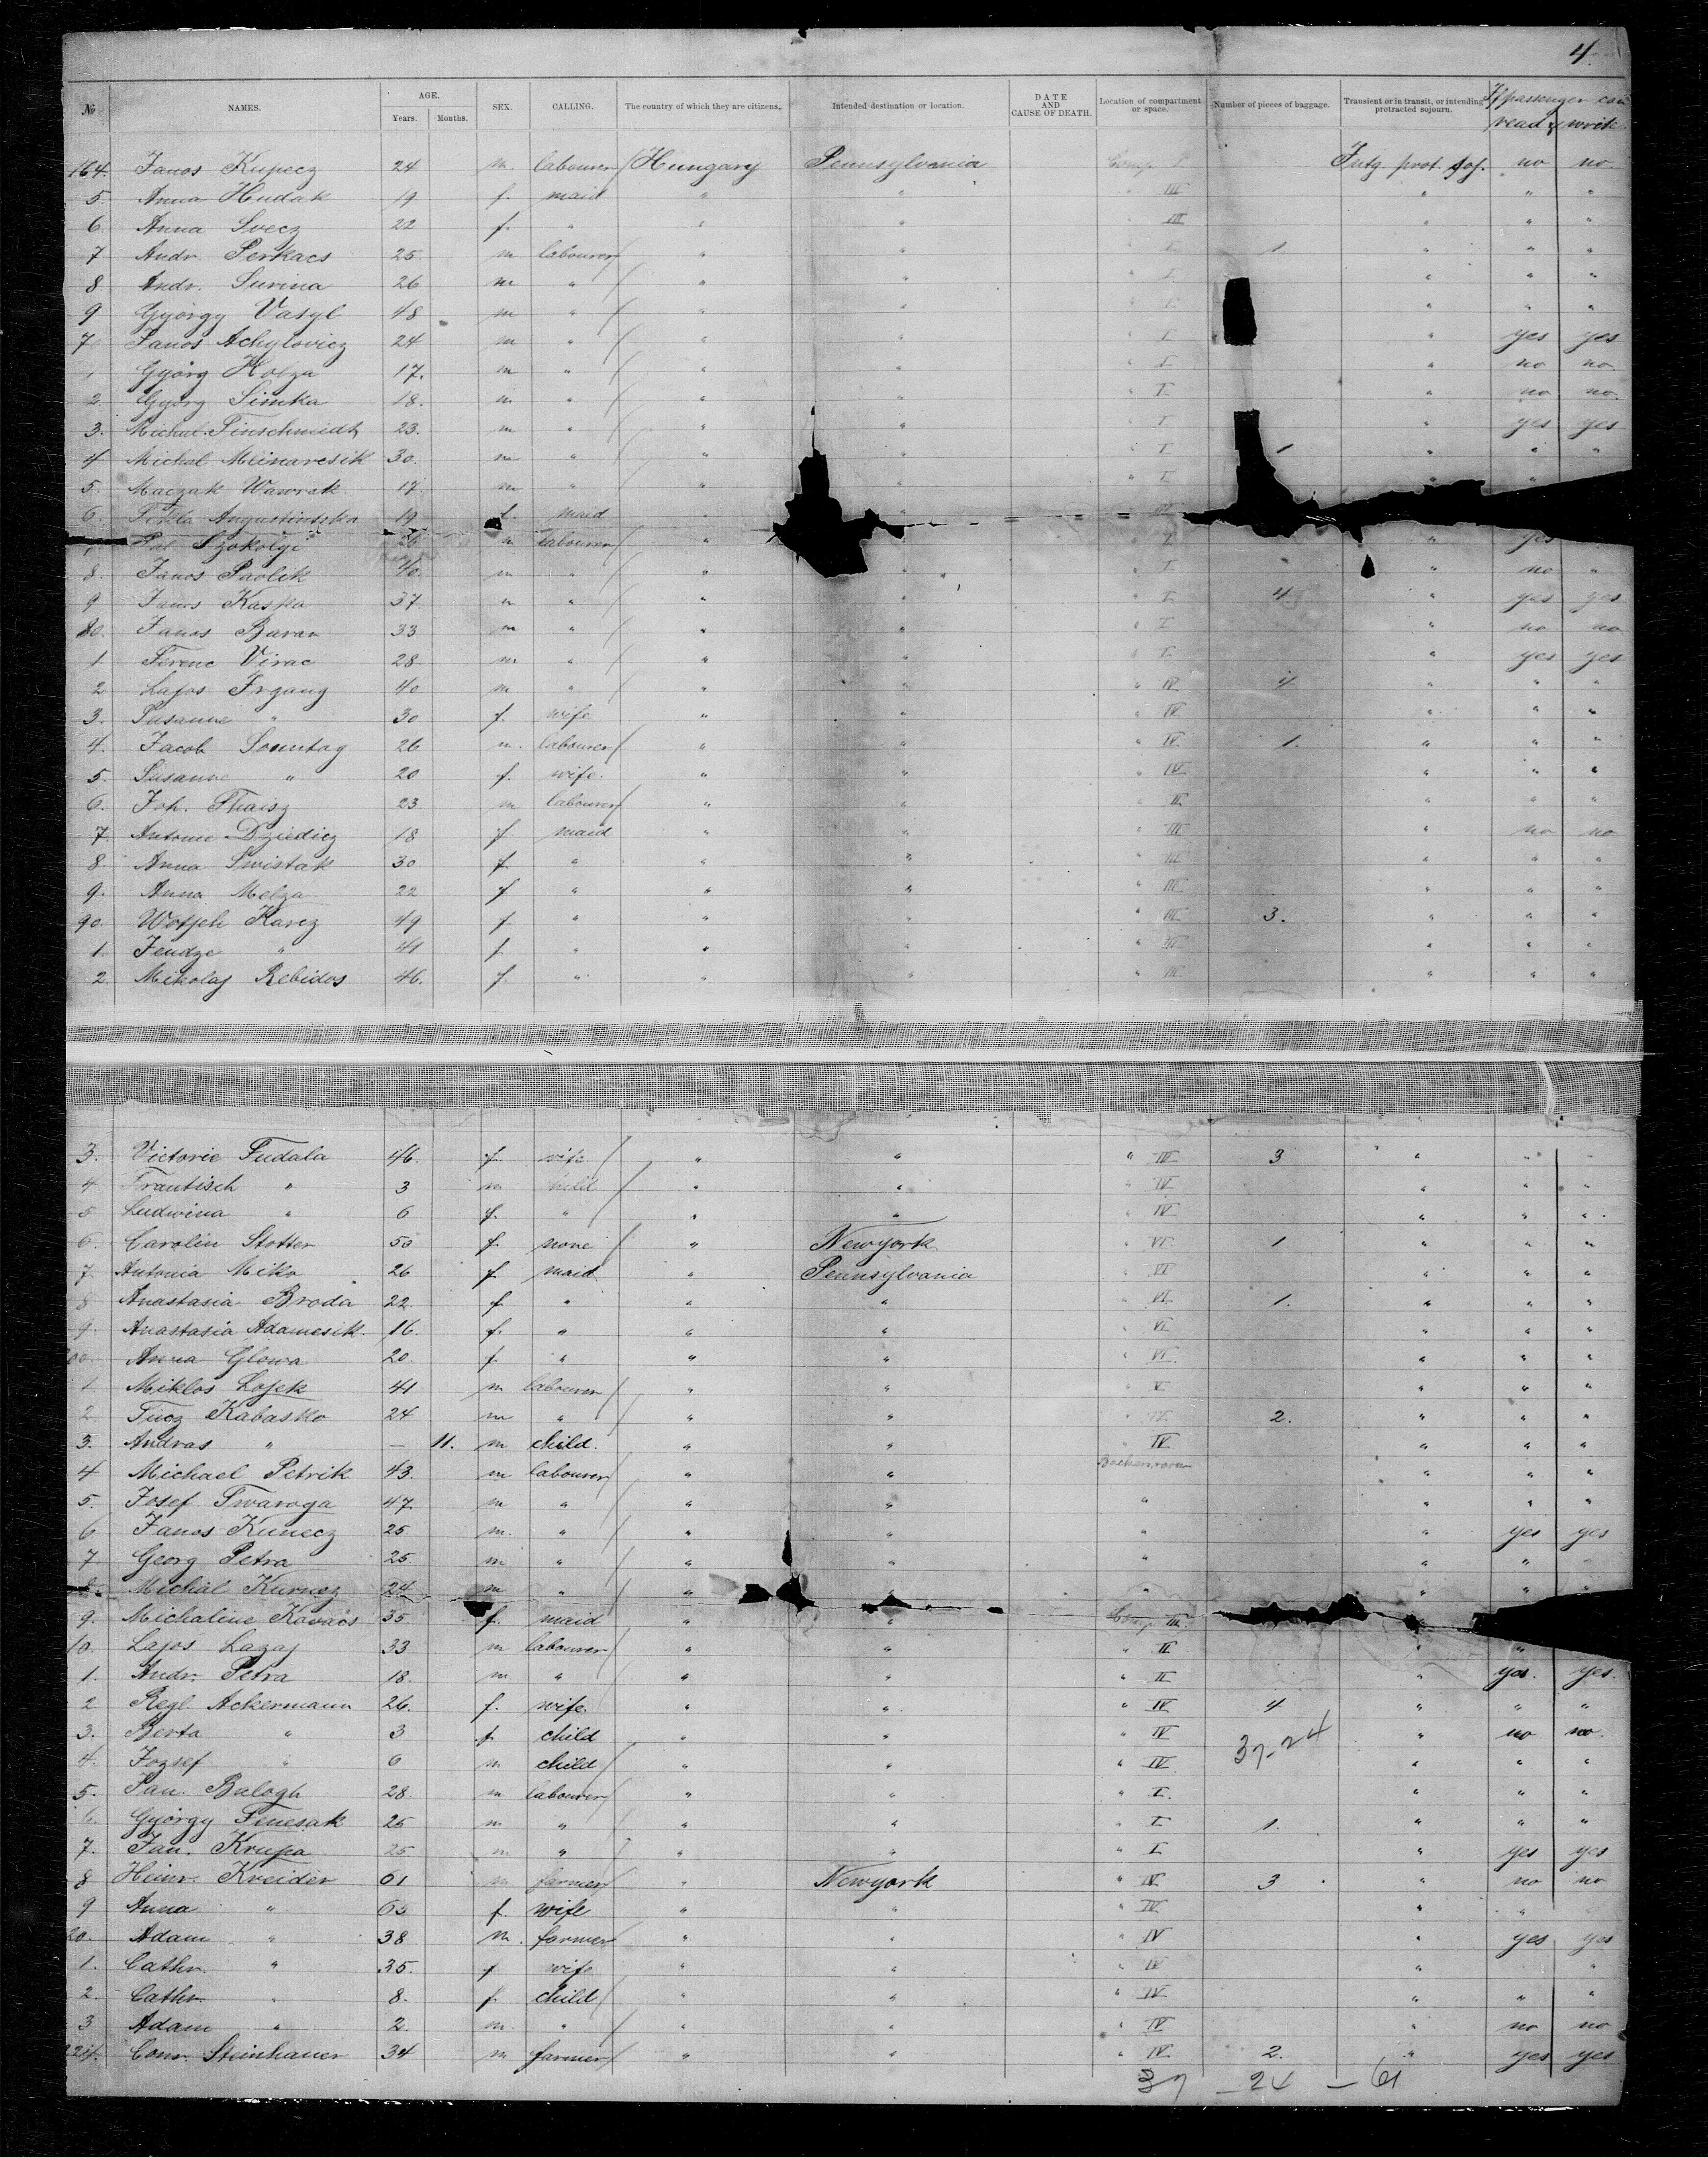 4.
№ NAMES. AGE. Years. Months. SEX. CALLING. The country of which they are citizens. Intended destination or location. DATE AND CAUSE OF DEATH. Location of compartment or space. Number of pieces of baggage. Transient or in transit, or intending protracted sojourn. If passenger can read & write
164. Janos Kupecz 24 m. labourer Hungary Pennsylvania Comp. I Intg. prot. soj. no no.
5. Anna Hudak 19 f. maid " " " III " " "
6 Anna Svecz 22 f. " " " " III " " "
7 Andr. Perkacs 25. m. labourer " " " I 1. " " "
8. Andr. Surina 26 m " " " " I " " "
9 György Vasyl 48 m " " " " I " " "
70 Janos Achylovicz 24 m " " " " I " yes yes
1 Györg Holza 17. m " " " " I " no no.
2. Györg Simka 18. m " " " " I " no no.
3. Michal Tinschmidt 23. m " " " " I " yes yes
4 Michal Mlinarcsik 30. m " " " " I 1 " " "
5. Maczak Wawrek 17 m " " " I " "
6. Tekla Augustinszka 19 f. maid " " III
Pal Szokolyi 26 m labourer " " I " yes
8. Janos Pavlik 40. m " " " " I " no "
9 Janos Kaska 37. m " " " " I 4 " yes yes
80. Janos Baran 33 m " " " " I " no no
1 Ferenc Virac 28. m " " " " I " yes yes
2 Lajos Irgang 40 m " " " " IV 4 " " "
3. Susanne " 30 f. wife " " " IV " " "
4. Jacob Sonntag 26 m. labourer " " " IV 1. " " "
5. Susanne " 20 f. wife. " " " IV " " "
6. Joh. Thaisz 23 m labourer " " " II " " "
7. Antonie Dziedicz 18 f maid " " " III " no no
8. Anna Swistak 30 f. " " " " III " " "
9. Anna Melza 22 f " " " " III " " "
90. Wotjeh Karcz 49 f " " " " III 3. " " "
1. Jendze " 41 f " " " " III " " "
2 Mikolaj Rebidos 46. f. " " " " III " " "
3. Victorie Fudala 46. f. wife " " " IV 3 " " "
4 Frantisch " 3 m child " " " IV " " "
5 Ludwina " 6 f. " " " " IV " " "
6. Carolin Stotter 50 f. none " Newyork " VI 1 " " "
7. Antonia Miko 26 f. maid " Pennsylvania " VI " " "
8 Anastasia Broda 22. f " " " " VI 1. " " "
9. Anastasia Adamcsik. 16. f. " " " " VI " " "
00. Anna Glowa 20. f. " " " " VI. " " "
1. Miklos Lojek 41 m labourer " " " V " " "
2. Kabasko 24 m " " " " IV 2. " " "
3. Andras " — 11. m child. " " " IV " " "
4 Michael Petrik 43. m labourer " " " " "
5. Josef Twaroga 47. m " " " " " " "
6 Janos Kunecz 25. m. " " " " " yes yes
7. Georg Petra 25. m " " " " " " "
8. Michal Kurucz 24 m " " " " " " "
9. Michaline Kovacs 35 f. maid " " Comp. III "
10. Lajos Lazaj 33 m labourer " " " II " "
1. Andr. Petra 18. m. " " " " II " yes. yes.
2. Regl. Ackermann 26. f. wife. " " " IV 4 " " "
3. Berta " 3 f. child " " " IV 37-24 " no no.
4. Jozsef " 6 m child " " " IV " " "
5. Jan. Balogh 28. m labourer " " " I. " " "
6. György Fenesak 25 m " " " " I 1. " " "
7. Jan. Krupa 25 m " " " " I " yes yes
8 Heinr. Kreider 61 m farmer " Newyork " IV 3 " no no
9 Anna " 65 f. wife " " " IV " " "
20. Adam " 38 m. farmer " " " IV " yes yes
1. Cathr. " 35. f wife " " " IV " "
2. Cathr. " 8. f. child " " " IV " " "
3 Adam " 2. m. " " " " IV " no no
224. Conr. Steinhauer 34 m farmer " " " IV 2. " yes yes
37 - 24 - 61